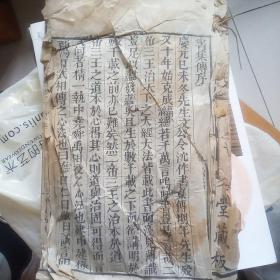 書集傳序
慶元己未冬先生文公令沈作書集傳明年先生歿
又十年始克成編總若干萬言嗚呼書豈易言哉二
帝三王治天下之大經大法皆載此書而淺見薄識
豈足以盡發蘊奧且生於數千載之下而欲講明於
數千載之前亦已難矣然二帝三王之治本於道
二帝三王之道本於心得其心則道與治固可得而
言矣何者精一執中堯舜禹相授之心法也建中建極
商湯周武相傳之心法也曰德曰仁曰敬曰誠言
堂藏板
nlis.com
的艺术